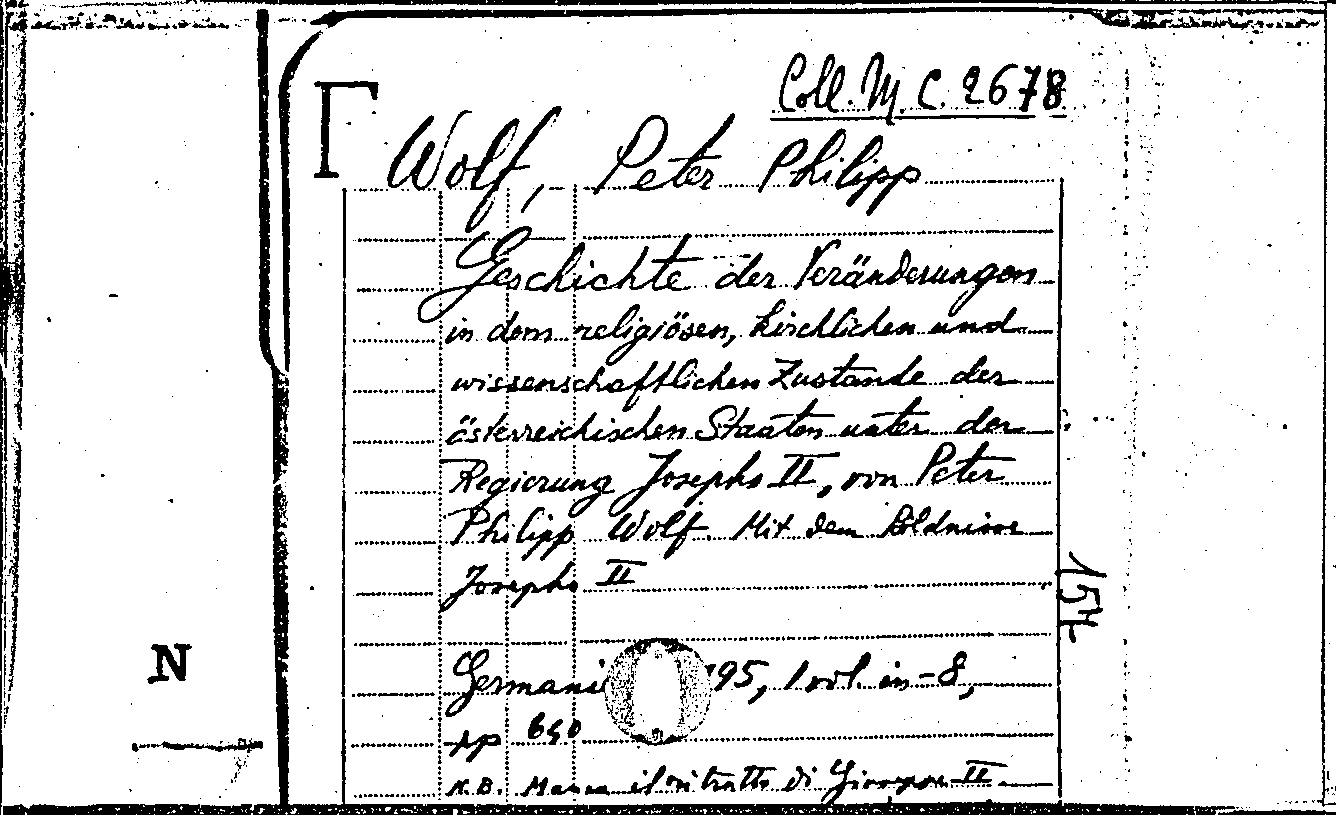 Coll. M. C. 2678
Wolf, Peter Philipp
Geschichte der Veränderungen
in dem religiösen, kirchlichen und
wissenschaftlichen Zustande der
österreichischen Staaten unter der
Regierung Josephs II, von Peter
Philipp Wolf. Mit dem Bildnisse
Josephs II
Germani 95, 1 vol. in-8,
pp 640
N.B. Manca il ritratto di Giuseppe II
154
N